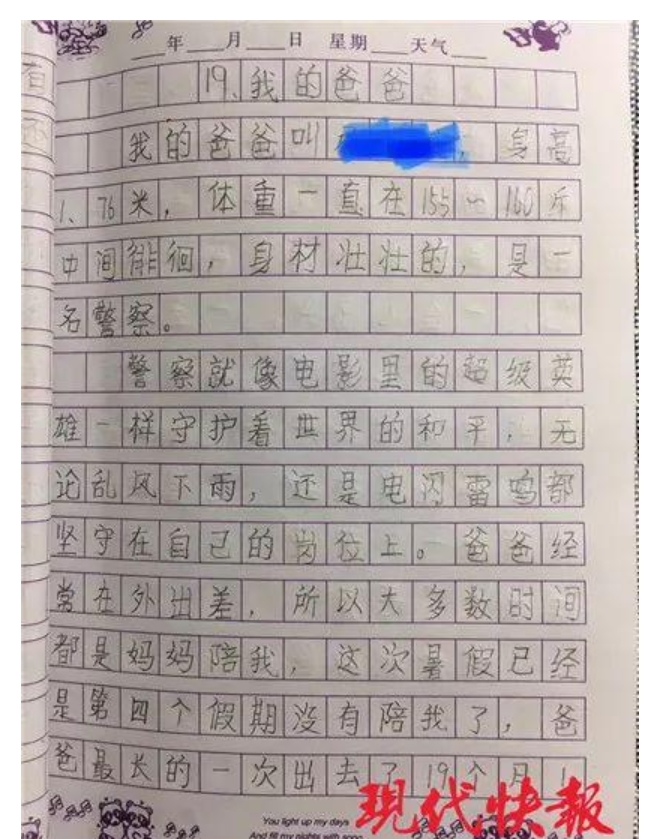 年 月 日 星期 天气
19、我的爸爸
我的爸爸叫 ，身高
1、76米，体重一直在155～160斤
中间徘徊，身材壮壮的，是一
名警察。
警察就像电影里的超级英
雄一样守护着世界的和平，无
论乱风下雨，还是电闪雷鸣都
坚守在自己的岗位上。爸爸经
常在外出差，所以大多数时间
都是妈妈陪我，这次暑假已经
是第四个假期没有陪我了，爸
爸最长的一次出去了19个月！
You light up my days
And fill my nights with song
现代快報